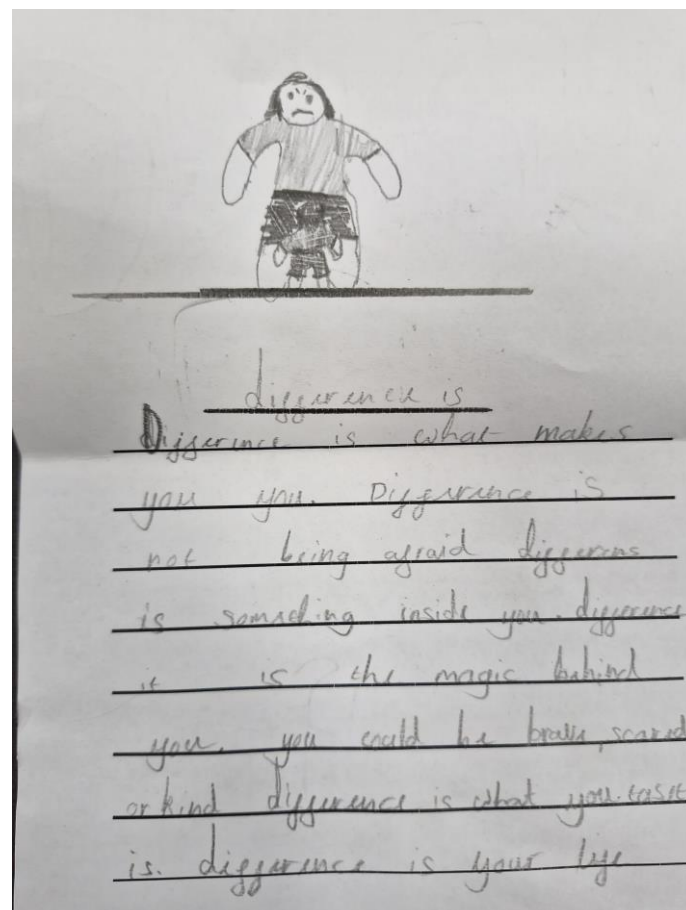 difference is
Difference is what makes
you you. Difference is
not being afraid differens
is something inside you. difference
it is the magic behind
you. you could be brave, scared
or kind difference is what you
is. difference is your life